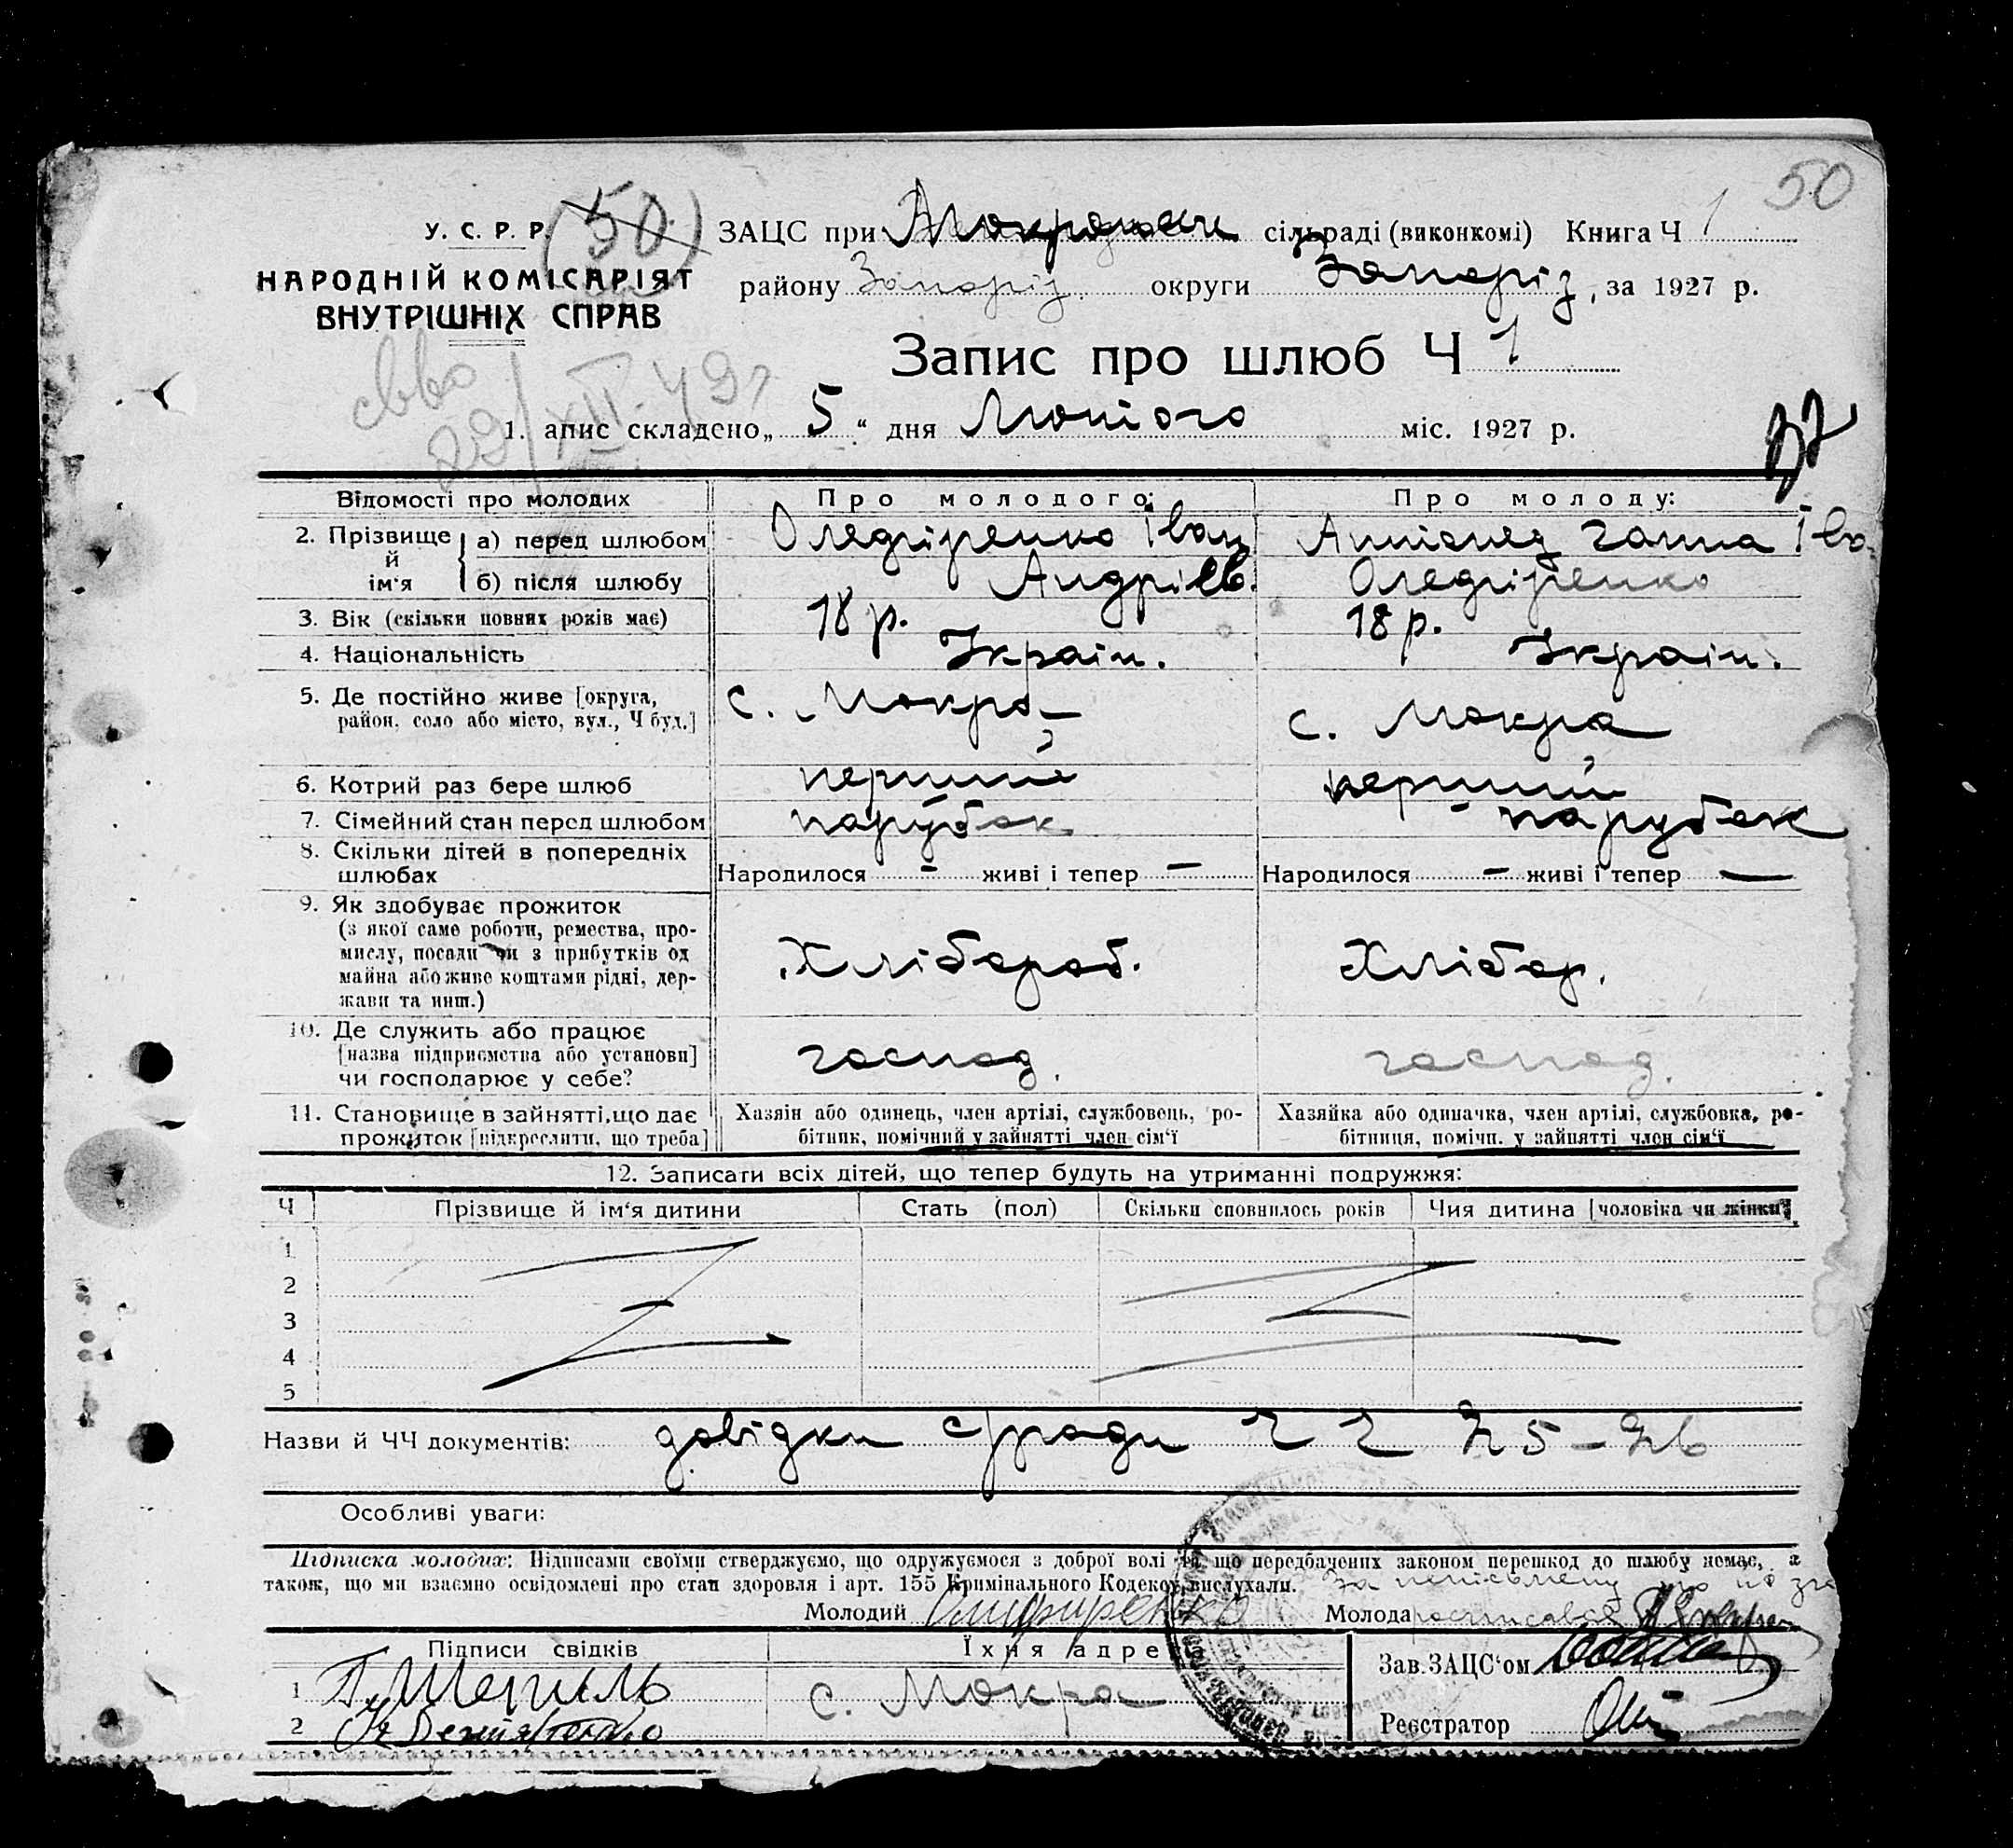 50
У. С. Р. Р. (50)
ЗАЦС при Мокрянськ сільраді (виконкомі) Книга Ч 1
НАРОДНІЙ КОМІСАРІЯТ
ВНУТРІШНІХ СПРАВ
району Запоріз. округи Запоріз, за 1927 р.
Запис про шлюб Ч 1
29/XII-49г
1. апис складено „ 5 “ дня Лютого міс. 1927 р.
Відомості про молодих
Про молодого:
Про молоду:
2. Прізвище й ім'я
а) перед шлюбом
Іван Андріев.
Ганна Іва
б) після шлюбу
3. Вік (скільки повних років має)
18 р.
18 р.
4. Національність
Украін.
Украін.
5. Де постійно живе [округа,
район, село або місто, вул., Ч буд.]
с. Мокра
с. Мокра
6. Котрий раз бере шлюб
перший
перший
7. Сімейний стан перед шлюбом
парубок
парубок
8. Скільки дітей в попередніх
шлюбах
Народилося – живі і тепер –
Народилося – живі і тепер –
9. Як здобуває прожиток
(з якої саме роботи, ремества, про-
мислу, посади чи з прибутків од
майна або живе коштами рідні, дер-
жави та инш.)
Хлібороб.
Хлібор.
10. Де служить або працює
[назва підприємства або установи]
чи господарює у себе?
господ.
господ.
11. Становище в зайнятті, що дає
прожиток [підкреслити, що треба]
Хазяін або одинець, член артілі, службовець, ро-
бітник, помічний у зайнятті член сім'ї
Хазяйка або одиначка, член артілі, службовка, ро-
бітниця, помічн. у зайнятті член сім'ї
12. Записати всіх дітей, що тепер будуть на утриманні подружжя:
Ч Прізвище й ім'я дитини Стать (пол) Скільки сповнилось років Чия дитина [чоловіка чи жінки]
1
2
3
4
5
Назви й ЧЧ документів: довідки с/ради ч ч 25-26
Особливі уваги:
Підписка молодих: Підписами своїми стверджуємо, що одружуємося з доброї волі та що передбачених законом перешкод до шлюбу немає, а
також, що ми взаємно освідомлені про стан здоровля і арт. 155 Крімінального Кодексу вислухали.
Молодий
Молода
Підписи свідків
Їхня адре
1
с. Мокра
2
Зав. ЗАЦС'ом
Реєстратор